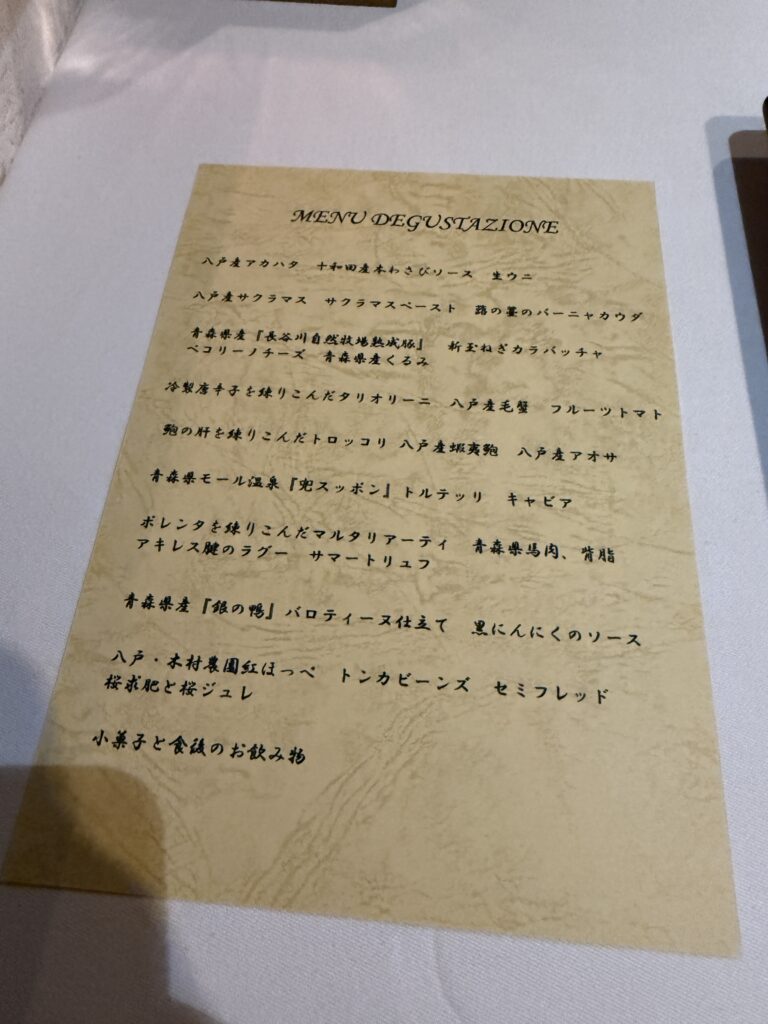 MENU DEGUSTAZIONE
八戸産アカハタ　十和田産本わさびソース　生ウニ
八戸産サクラマス　サクラマスペースト　蕗の薹のバーニャカウダ
青森県産『長谷川自然牧場熟成豚』　新玉ねぎカラバッチャ
ペコリーノチーズ　青森県産くるみ
冷製唐辛子を練りこんだタリオリーニ　八戸産毛蟹　フルーツトマト
鮑の肝を練りこんだトロッコリ 八戸産蝦夷鮑　八戸産アオサ
青森県モール温泉『兜スッポン』トルテッリ　キャビア
ポレンタを練りこんだマルタリアーティ　青森県馬肉、背脂
アキレス腱のラグー　サマートリュフ
青森県産『銀の鴨』バロティーヌ仕立て　黒にんにくのソース
八戸・木村農園紅ほっぺ　トンカビーンズ　セミフレッド
桜求肥と桜ジュレ
小菓子と食後のお飲み物